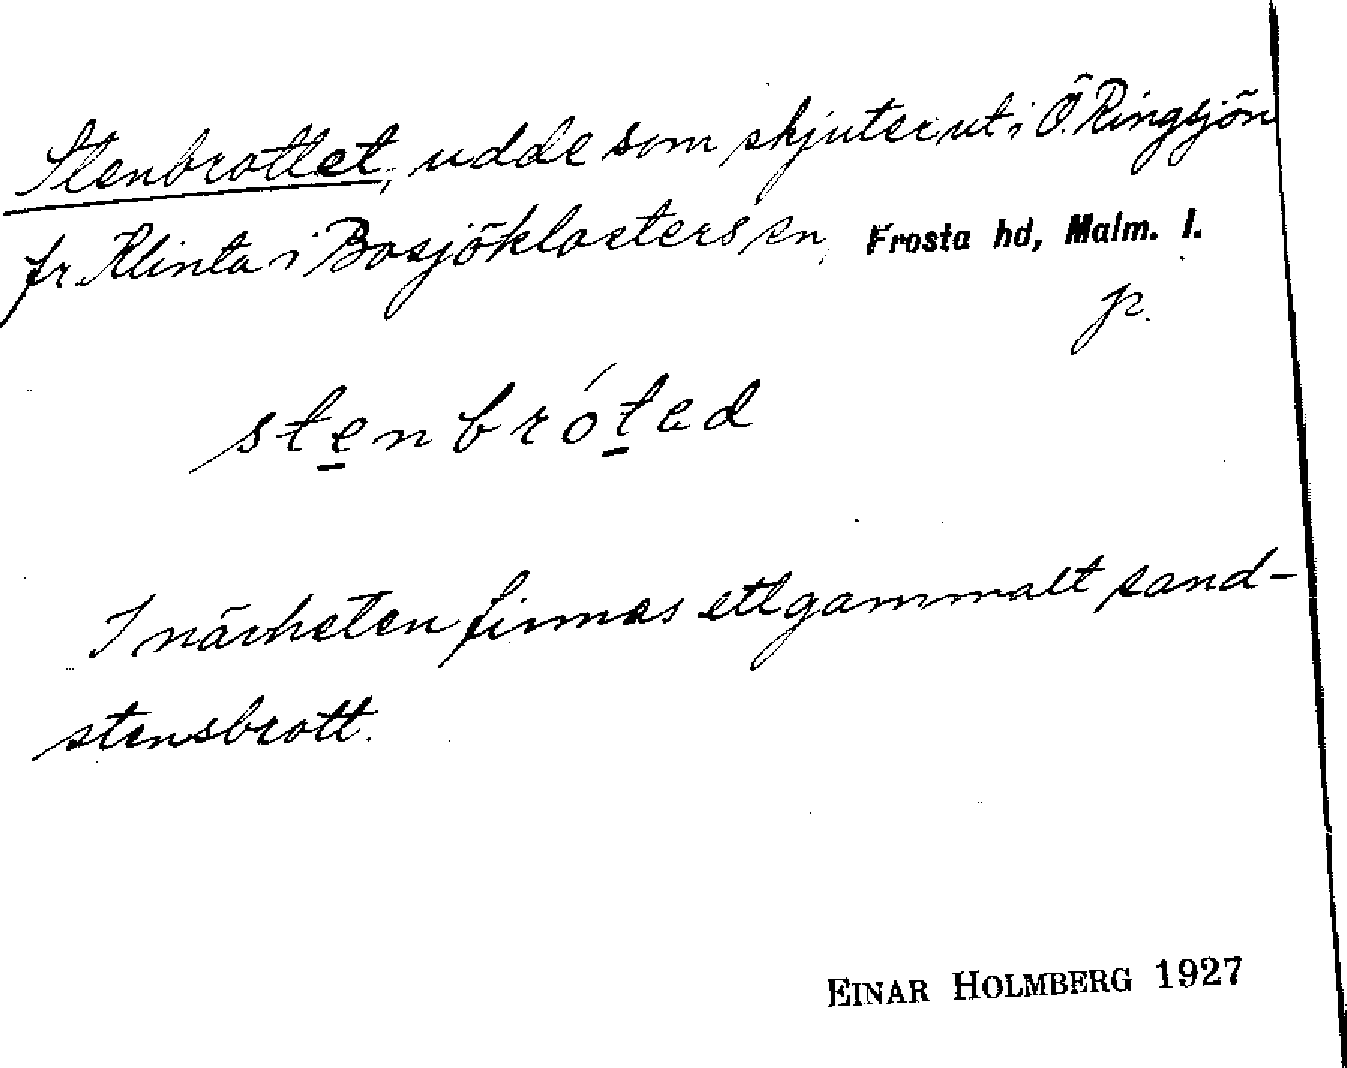 Stenbrottet, udde som skjuter ut i Ö. Ringsjön
fr. Klinta i Bosjöklosters sn, Frosta hd, Malm. l.
p.
stenbrótad
I närheten finnes ett gammalt sand-
stensbrott.
EINAR HOLMBERG 1927